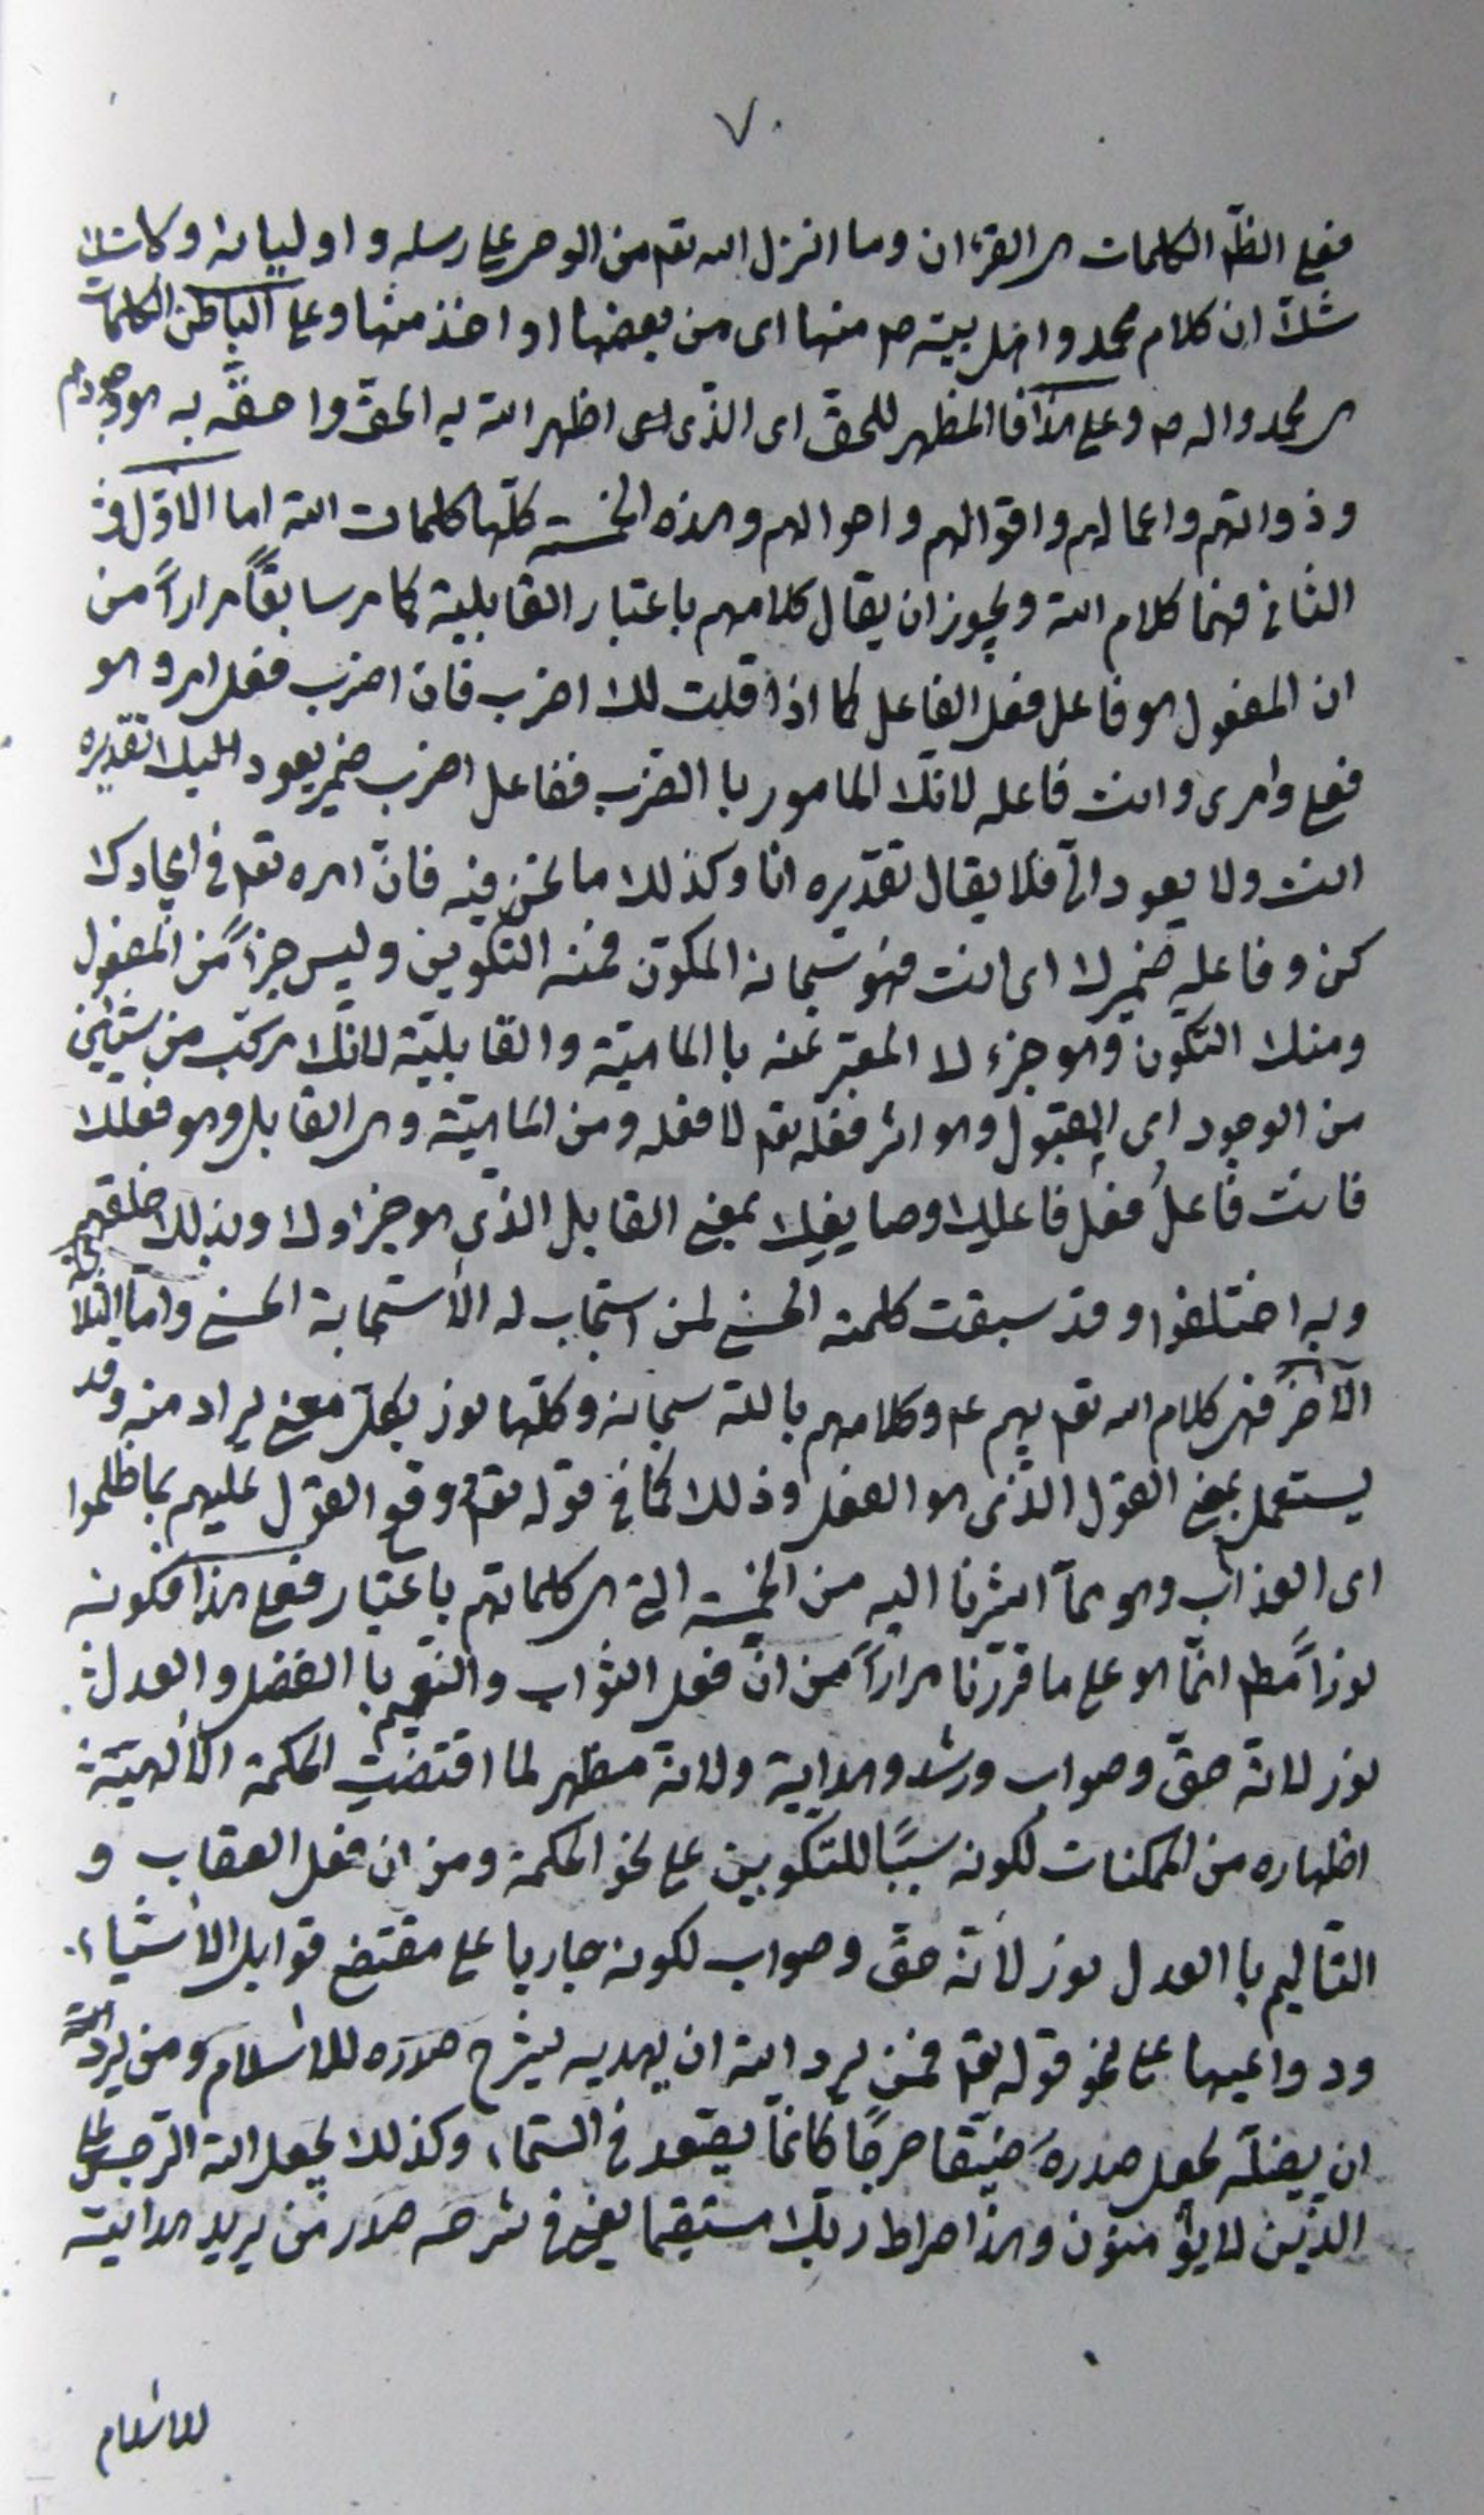 ٧٠
فعلى الظم الكلمات هى القرءان وما انزل الله تعم من الوحى على رسله و اوليائه و كا شك
شك ان كلام محمد واهل بيته ص منها اى من بعضها او اخذ منها وعلى الباطن الكلمات
هى محمد واله ص وعلى هذا فالمظهر للحق اى الذى اظهر الله به الحق واحقه به وجودهم
وذواتهم واعمالهم واقوالهم واحوالهم وهذه الخمسه كلها كلمات الله اما الاول و
الثانى فهما كلام الله ويجوز ان يقال كلامهم باعتبار القابلية كما مر سابقاً مراراً من
ان المفعول هو فاعل فعل الفاعل كما اذا قلت لك اضرب فان اضرب فعل امر وهو
فعلى وامرى وانت فاعله لانك المامور با الضرب ففاعل اضرب ضمير يعود اليك تقديره
انت ولا يعود الىّ فلا يقال تقديره انا وكذلك ما نحن فيه فانّ امره تعم فى ايجادك
كن وفاعله ضميرك اى انت فهو سبحانه المكوّن فمنه التكوين وليس جزأً من المفعول
ومنك التكوّن وهو جزءك المعبّر عنه با الماهيّة والقابليّة لانّك مركّب من شيئين
من الوجود اى المقبول وهو اثر فعله تعم لا فعله ومن الماهيّة وهى القابل وهو فعلك
فانت فاعلُ فعل فاعلك وصايغك بمعنى القابل الذى هو جزاوك وبذلك خلقهم
وبه اختلفوا وقد سبقت كلمته الحسنى لمن استجاب له الأستجابة الحسنى وامّا الثلاثة
الآخر فهى كلام الله تعم بهم ع وكلامهم بالله سبحانه وكلها نور بكل معنى يراد منه وقد
يستعمل بمعنى القول الذى هو الفعل وذلك كما فى قوله تعم ووقع القول عليهم بما ظلموا
اى العذاب وهو ممآ اشرنا اليه من الخمسه التى هى كلماتهم باعتبار فعلى هذا فكونه
نوراً مطم انّما هو على ما قرّرنا مراراً من انّ فعل الثواب والنعيم با الفضل والعدل
نور لانّه حقّ وصواب ورشد وهداية ولانه مظهر لما اقتضت الحكمة الألهيّة
اظهاره من الممكنات لكونه سبباً للتكوين على نحو الحكمة ومن ان فعل العقاب و
التاليم با العدل نور لأنّه حقّ وصواب لكونه جاريا على مقتضى قوابل الأشياء
ودواعيها على نحو قوله تعم فمن يرد الله ان يهديه يشرح صدره للاسلام ومن يرد الله
ان يضلّه يجعل صدره ضيّقا حرجًا كانمّا يصّعد فى السّماء وكذلك يجعل الله الرّجس على
الذّين لا يؤمنون وهذا صراط ربّك مستقيما يعنى فى شرحه صدر من يريد هدايته
للاسلام